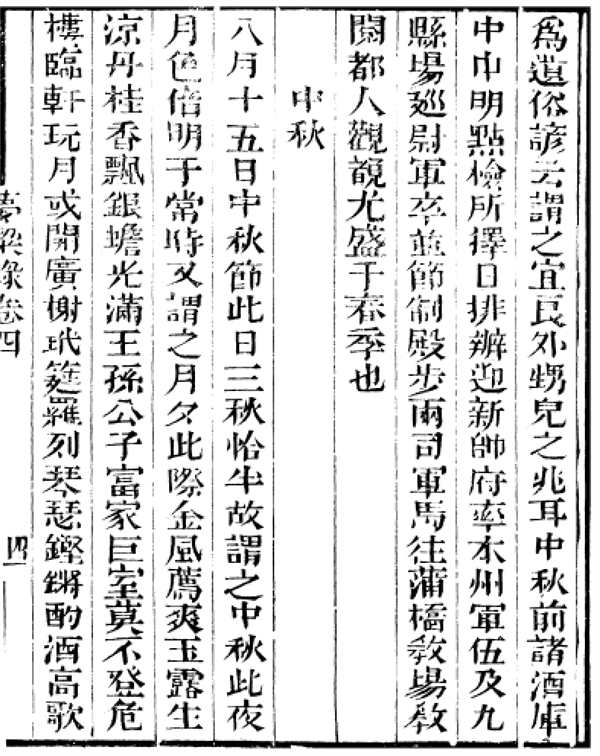 為遺俗諺云謂之宜良外甥兒之兆耳中秋前諸酒庫
中巾明點檢所擇日排辦迎新帥府率本州軍伍及九
縣場廵尉軍卒並節制殿步兩司軍馬往蒲橋敎場敎
閱都人觀覩尤盛于春季也
中秋
八月十五日中秋節此日三秋恰半故謂之中秋此夜
月色倍明于常時又謂之月夕此際金風薦爽玉露生
涼丹桂香飄銀蟾光滿王孫公子富家巨室莫不登危
樓臨軒玩月或開廣榭玳筵羅列琴瑟鏗鏘酌酒高歌
夢粱錄卷四
四